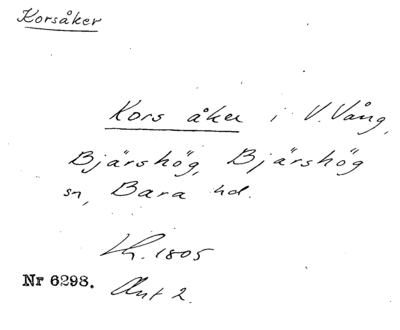 Korsåker
Kors åker i V. Vång,
Bjärshög, Bjärshög
sn, Bara hd.
Lh. 1805
Nr 6298. Akt 2.